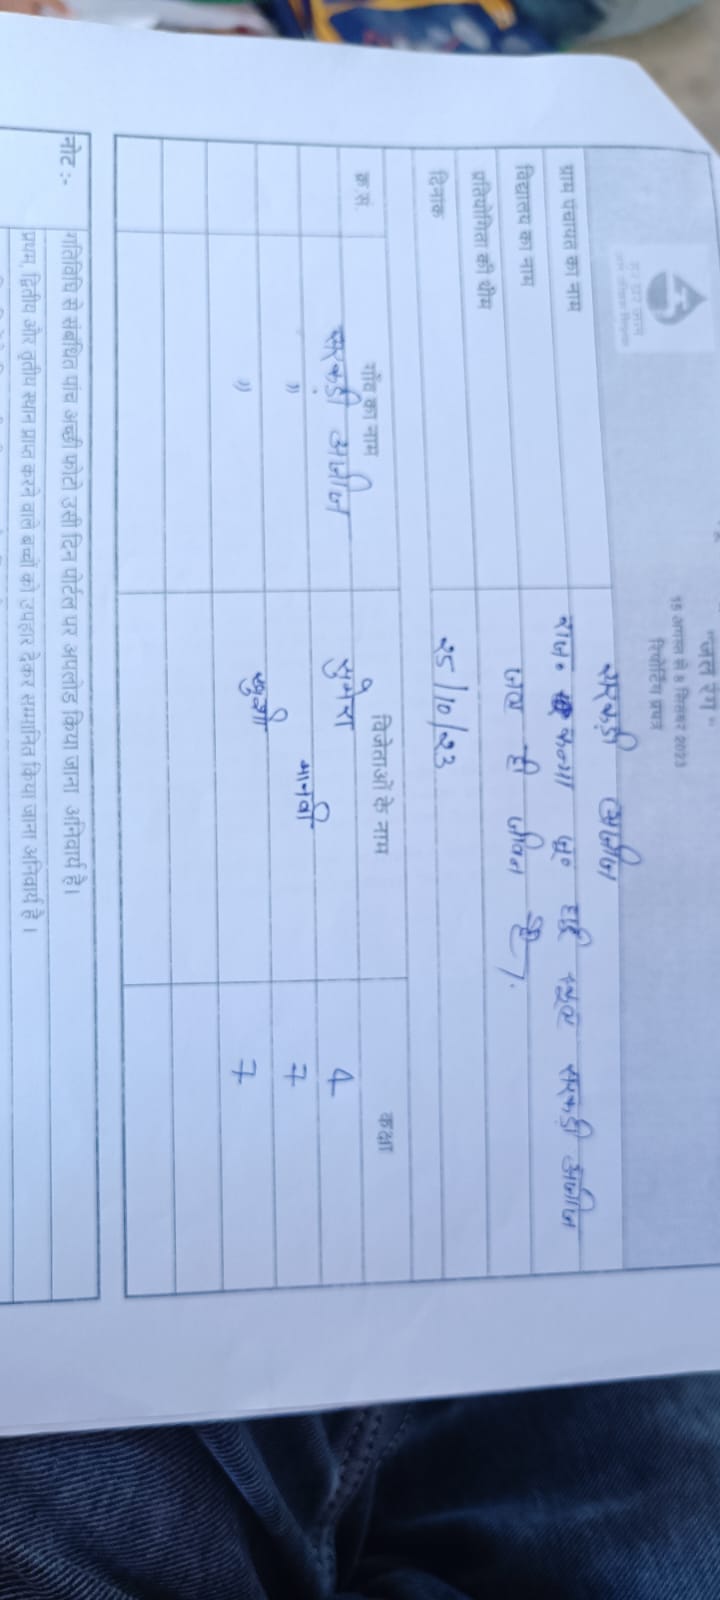 "जल रंग"
15 अगस्त से 8 सितंबर 2023
रिपोर्टिंग प्रपत्र
ग्राम पंचायत का नाम सरकड़ी अजीज
विद्यालय का नाम राज॰ कन्या जू॰ हाई स्कूल सरकड़ी अजीज
प्रतियोगिता की थीम जल ही जीवन है।
दिनांक २5/10/२3
क्र.सं. गाँव का नाम विजेताओं के नाम कक्षा
सरकड़ी अजीज सुमेरा 4
" मानवी 7
" खुशी 7
नोट :- गतिविधि से संबंधित पांच अच्छी फोटो उसी दिन पोर्टल पर अपलोड किया जाना अनिवार्य है।
प्रथम, द्वितीय और तृतीय स्थान प्राप्त करने वाले बच्चों को उपहार देकर सम्मानित किया जाना अनिवार्य है।